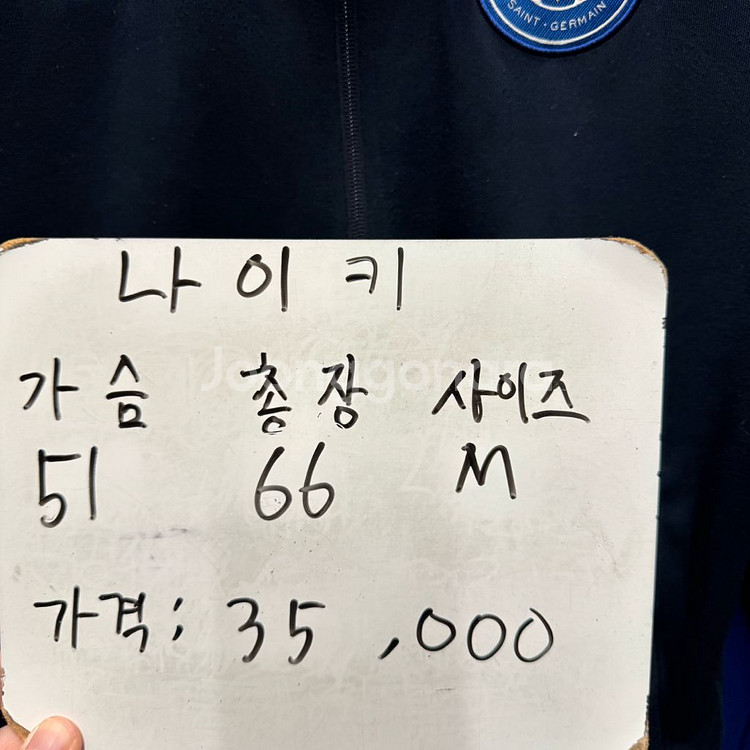 SAINT-GERMAIN
나이키
가슴 총장 사이즈
51 66 M
가격: 35,000